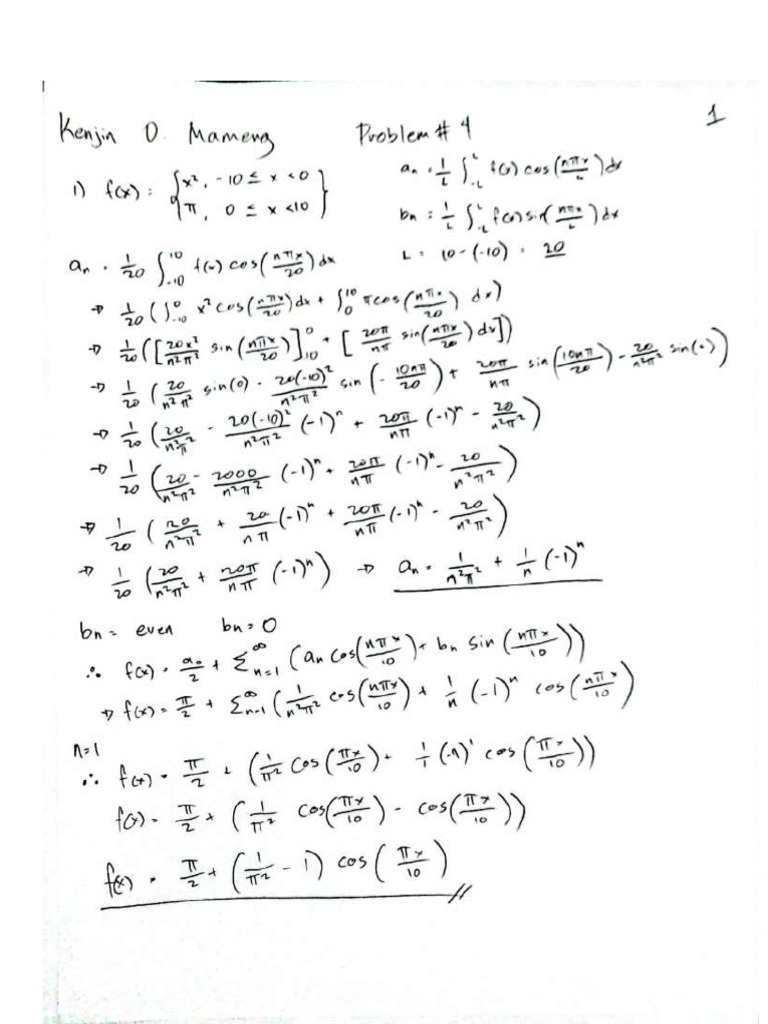 1
Kenjin D. Mameng Problem # 4
1) f(x) : { x², -10 ≤ x < 0
π, 0 ≤ x < 10 }
aₙ = 1/L ∫_-L^L f(x) cos(nπx/L) dx
bₙ = 1/L ∫_-L^L f(x) sin(nπx/L) dx
L = 10 - (-10) = 20
aₙ = 1/20 ∫_-10^10 f(x) cos(nπx/20) dx
→ 1/20 (∫_-10^0 x² cos(nπx/20) dx + ∫_0^10 π cos(nπx/20) dx)
→ 1/20 ([20x²/n²π² sin(nπx/20)]_10^0 + [20π/nπ sin(nπx/20) dx])
→ 1/20 (20/n²π² sin(0) - 20(-10)²/n²π² sin(-10nπ/20) + 20π/nπ sin(10nπ/20) - 20/n²π² sin(0))
→ 1/20 (20/n²π - 20(-10)²/n²π² (-1)ⁿ + 20π/nπ (-1)ⁿ - 20/n²π²)
→ 1/20 (20/n²π² - 2000/n²π² (-1)ⁿ + 20π/nπ (-1)ⁿ - 20/n²π²)
→ 1/20 (20/n²π² + 20/nπ (-1)ⁿ + 20π/nπ (-1)ⁿ - 20/n²π²)
→ 1/20 (20/n²π² + 20π/nπ (-1)ⁿ) → aₙ = 1/n²π² + 1/n (-1)ⁿ
bₙ = even bₙ = 0
∴ f(x) = a₀/2 + Σ_n=1^∞ (aₙ cos(nπx/10) + bₙ sin(nπx/10))
→ f(x) = π/2 + Σ_n=1^∞ (1/n²π² cos(nπx/10) + 1/n (-1)ⁿ cos(nπx/10)
n=1
∴ f(x) = π/2 + (1/π² cos(πx/10) + 1/1 (-1)¹ cos(πx/10))
f(x) = π/2 + (1/π² cos(πx/10) - cos(πx/10))
f(x) = π/2 + (1/π² - 1) cos(πx/10)